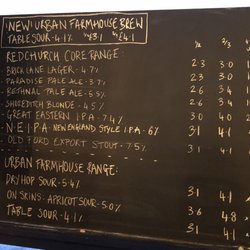 'NEW' URBAN FARMHOUSE BREW
TABLE SOUR - 4.1% ½ £3.1 £4.1
REDCHURCH CORE RANGE: ½ ⅔
BRICK LANE LAGER - 4.7% 2.3 3.0
PARADISE PALE ALE - 3.7% 2.3 3.0
BETHNAL PALE ALE - 5.5% 2.6 3.4
SHOREDITCH BLONDE - 4.5% 2.3 3.0
GREAT EASTERN I.P.A - 7.4% 3.1 4.0
N.E.I.P.A - NEW ENGLAND STYLE I.P.A - 6% 3.1 4.1
- OLD FORD EXPORT STOUT - 7.5% 3.1
URBAN FARMHOUSE RANGE:
DRY HOP SOUR - 5.4% 3.1 4.1
ON SKINS - APRICOT SOUR - 5.0% 3.6 4.8
TABLE SOUR - 4.1% 3.1 4.1